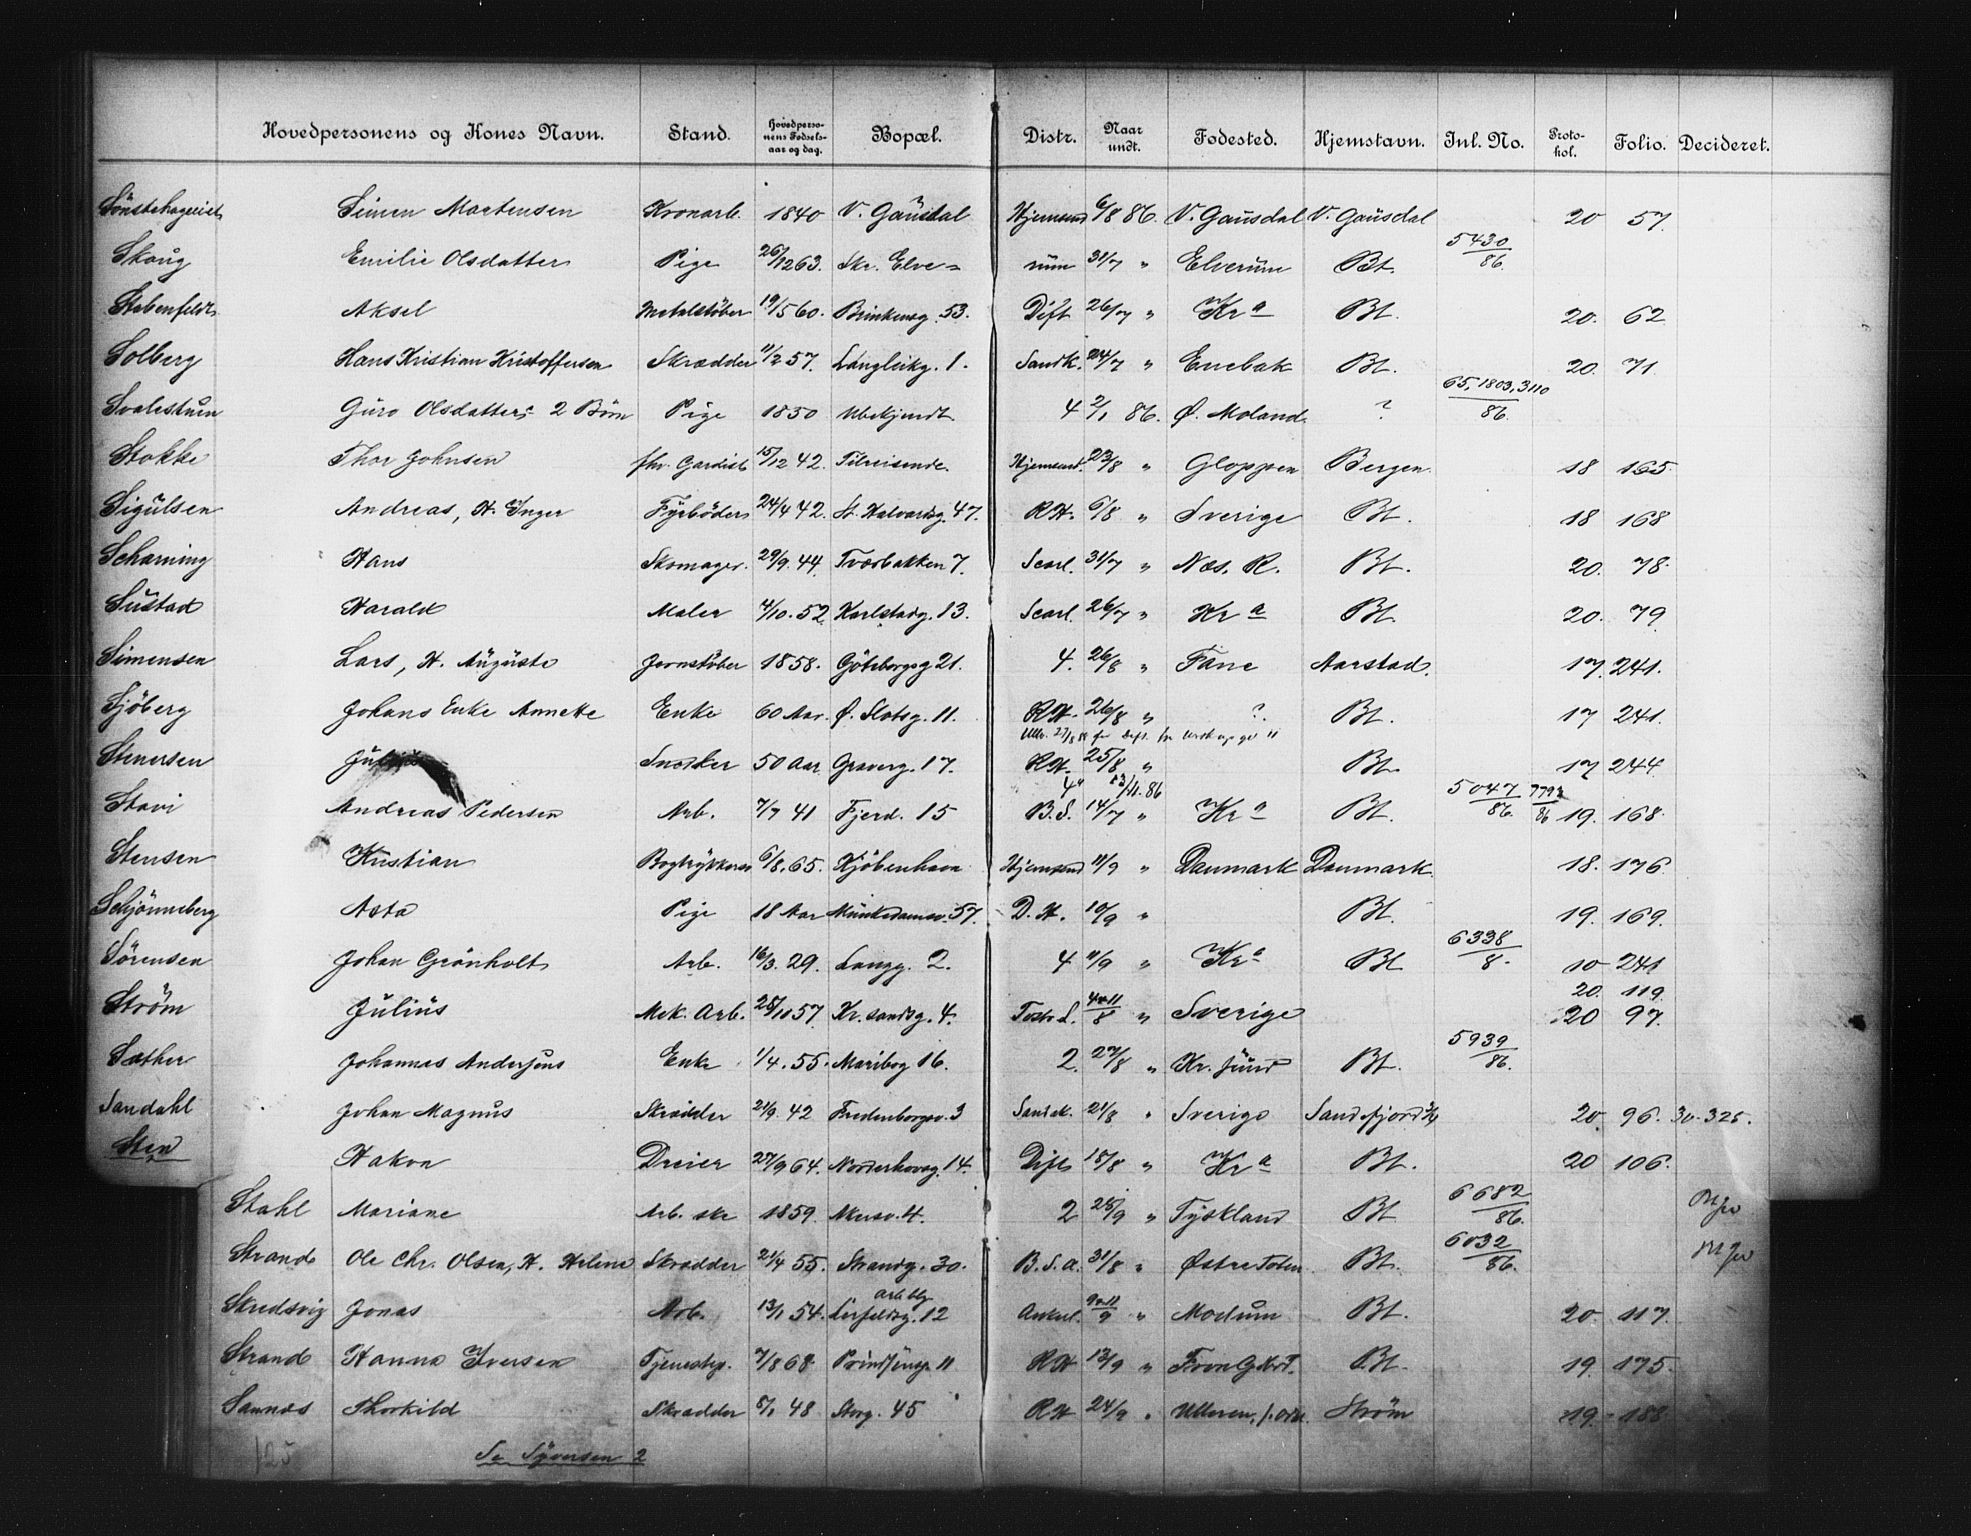 Hovedpersonens og Kones Navn. Stand. Hovedpersonens Fødselsaar og dag. Bopæl. Distr. Naar undt. Fødested. Hjemstavn. Inl. No. Protokol. Folio. Decideret.
Simen Martensen Kronarb. 1840 V. Gausdal Hjemsend 6/8 86. V. Gausdal V. Gausdal 20 57.
Skoug Emilie Olsdatter Pige 26/12 63. Skr. Elve= rum 31/7 " Elverum Bt. 5430/86.
Stabenfeldt Aksel Metalstøber 19/5 60. Brinkensg. 53. Dift 26/7 " Kra Bt. 20. 62
Solberg Hans Kristian Kristoffersen Skrædder 11/2 57. Langleikg. 1. Sandk. 24/7 " Enebak Bt. 20. 71.
Svalestuen Guro Olsdatter; 2 Børn Pige 1850 Ubekjendt 4 2/1 86. Ø. Moland ? 65, 1803, 3110/86.
Stokke Thor Johnsen fhv. Gardist 15/12 42. Tilreisende. Hjemsend. 23/8 " Gloppen Bergen 18 165
Sigulsen Andreas, H. Inger Fyrbøder 24/4 42. St. Halvardsg. 47. RH. 6/8 " Sverige Bt. 18 168
Scharning Hans Skomager. 29/9. 44. Tværbakken 7. Scarl. 31/7 " Næs. R. Bt. 20. 78.
Sustad Harald Maler 4/10. 52 Karlstadg. 13. Scarl. 26/7 " Kra Bt. 20. 79.
Simensen Lars, H. Auguste Jernstøber 1858. Göteborgsg 21. 4. 26/8 " Fane Aarstad. 17. 241.
Sjöberg Johans Enke Annette Enke 60 Aar. Ø. Slotsg. 11. RH. 26/8 " ?. Bt. 17 241.
Stenersen Snedker 50 Aar Graverg. 17. RH. 25/8 " Bt. 17 244.
Stavi Andreas Pedersen Arb. 7/7 41 Fjerd. 15 B.S. 14/7 " Kra Bt. 5047/86. 19. 168.
Stensen Kristian 6/8. 65. Kjöbenhavn Hjemsend 11/9 " Danmark Danmark. 18. 176.
Schjönneberg Asta Pige 18 Aar Munkedamsv. 57. D. H. 10/9 " Bt. 19. 169.
Sørensen Johan Grönholt Arb. 16/3. 29. Langg. 2. 4 11/9 " Kra Bt 6338/8. 10 241
20. 119
Strøm Julius Mek. Arb. 25/11 57. Kr. sandsg. 4. " Sverige 20 97.
Sæther Johannes Andersens Enke 1/4. 55. Maribog 16. 2. 27/8 " Kr. sund Bt. 5939/86.
Sandahl Johan Magnus Skrædder 21/9. 42 Fredenborgsv. 3 21/8 " Sverige Sandefjord 20. 96. 30. 325.
Sten Hakon Dreier 27/9 64. Norderhovsg. 14. Dift 18/8 " Kra Bt. 20 106.
Stahl Mariane Arb. ske 1859. Akersv. 4. 2 28/9 " Tyskland Bt 6682/86.
Strand Ole Chr. Olsen, H. Helene Skrædder 21/4 55. Strandg. 30. B.S.A. 31/8 " Østre Toten Bt. 6032/86.
Skredsvig Jonas Arb. 13/1 54. 12 Ankerl. " Modum Bt 20. 117.
Strand Hanna Iversen Tjenestep. 7/8 68 11 RH 13/9 " Bt. 19. 175.
Sannæs Thorkild Skrædder 5/1 48 Storg. 45 RH 24/9 " Strøm 19. 188
125 Se Syversen 2